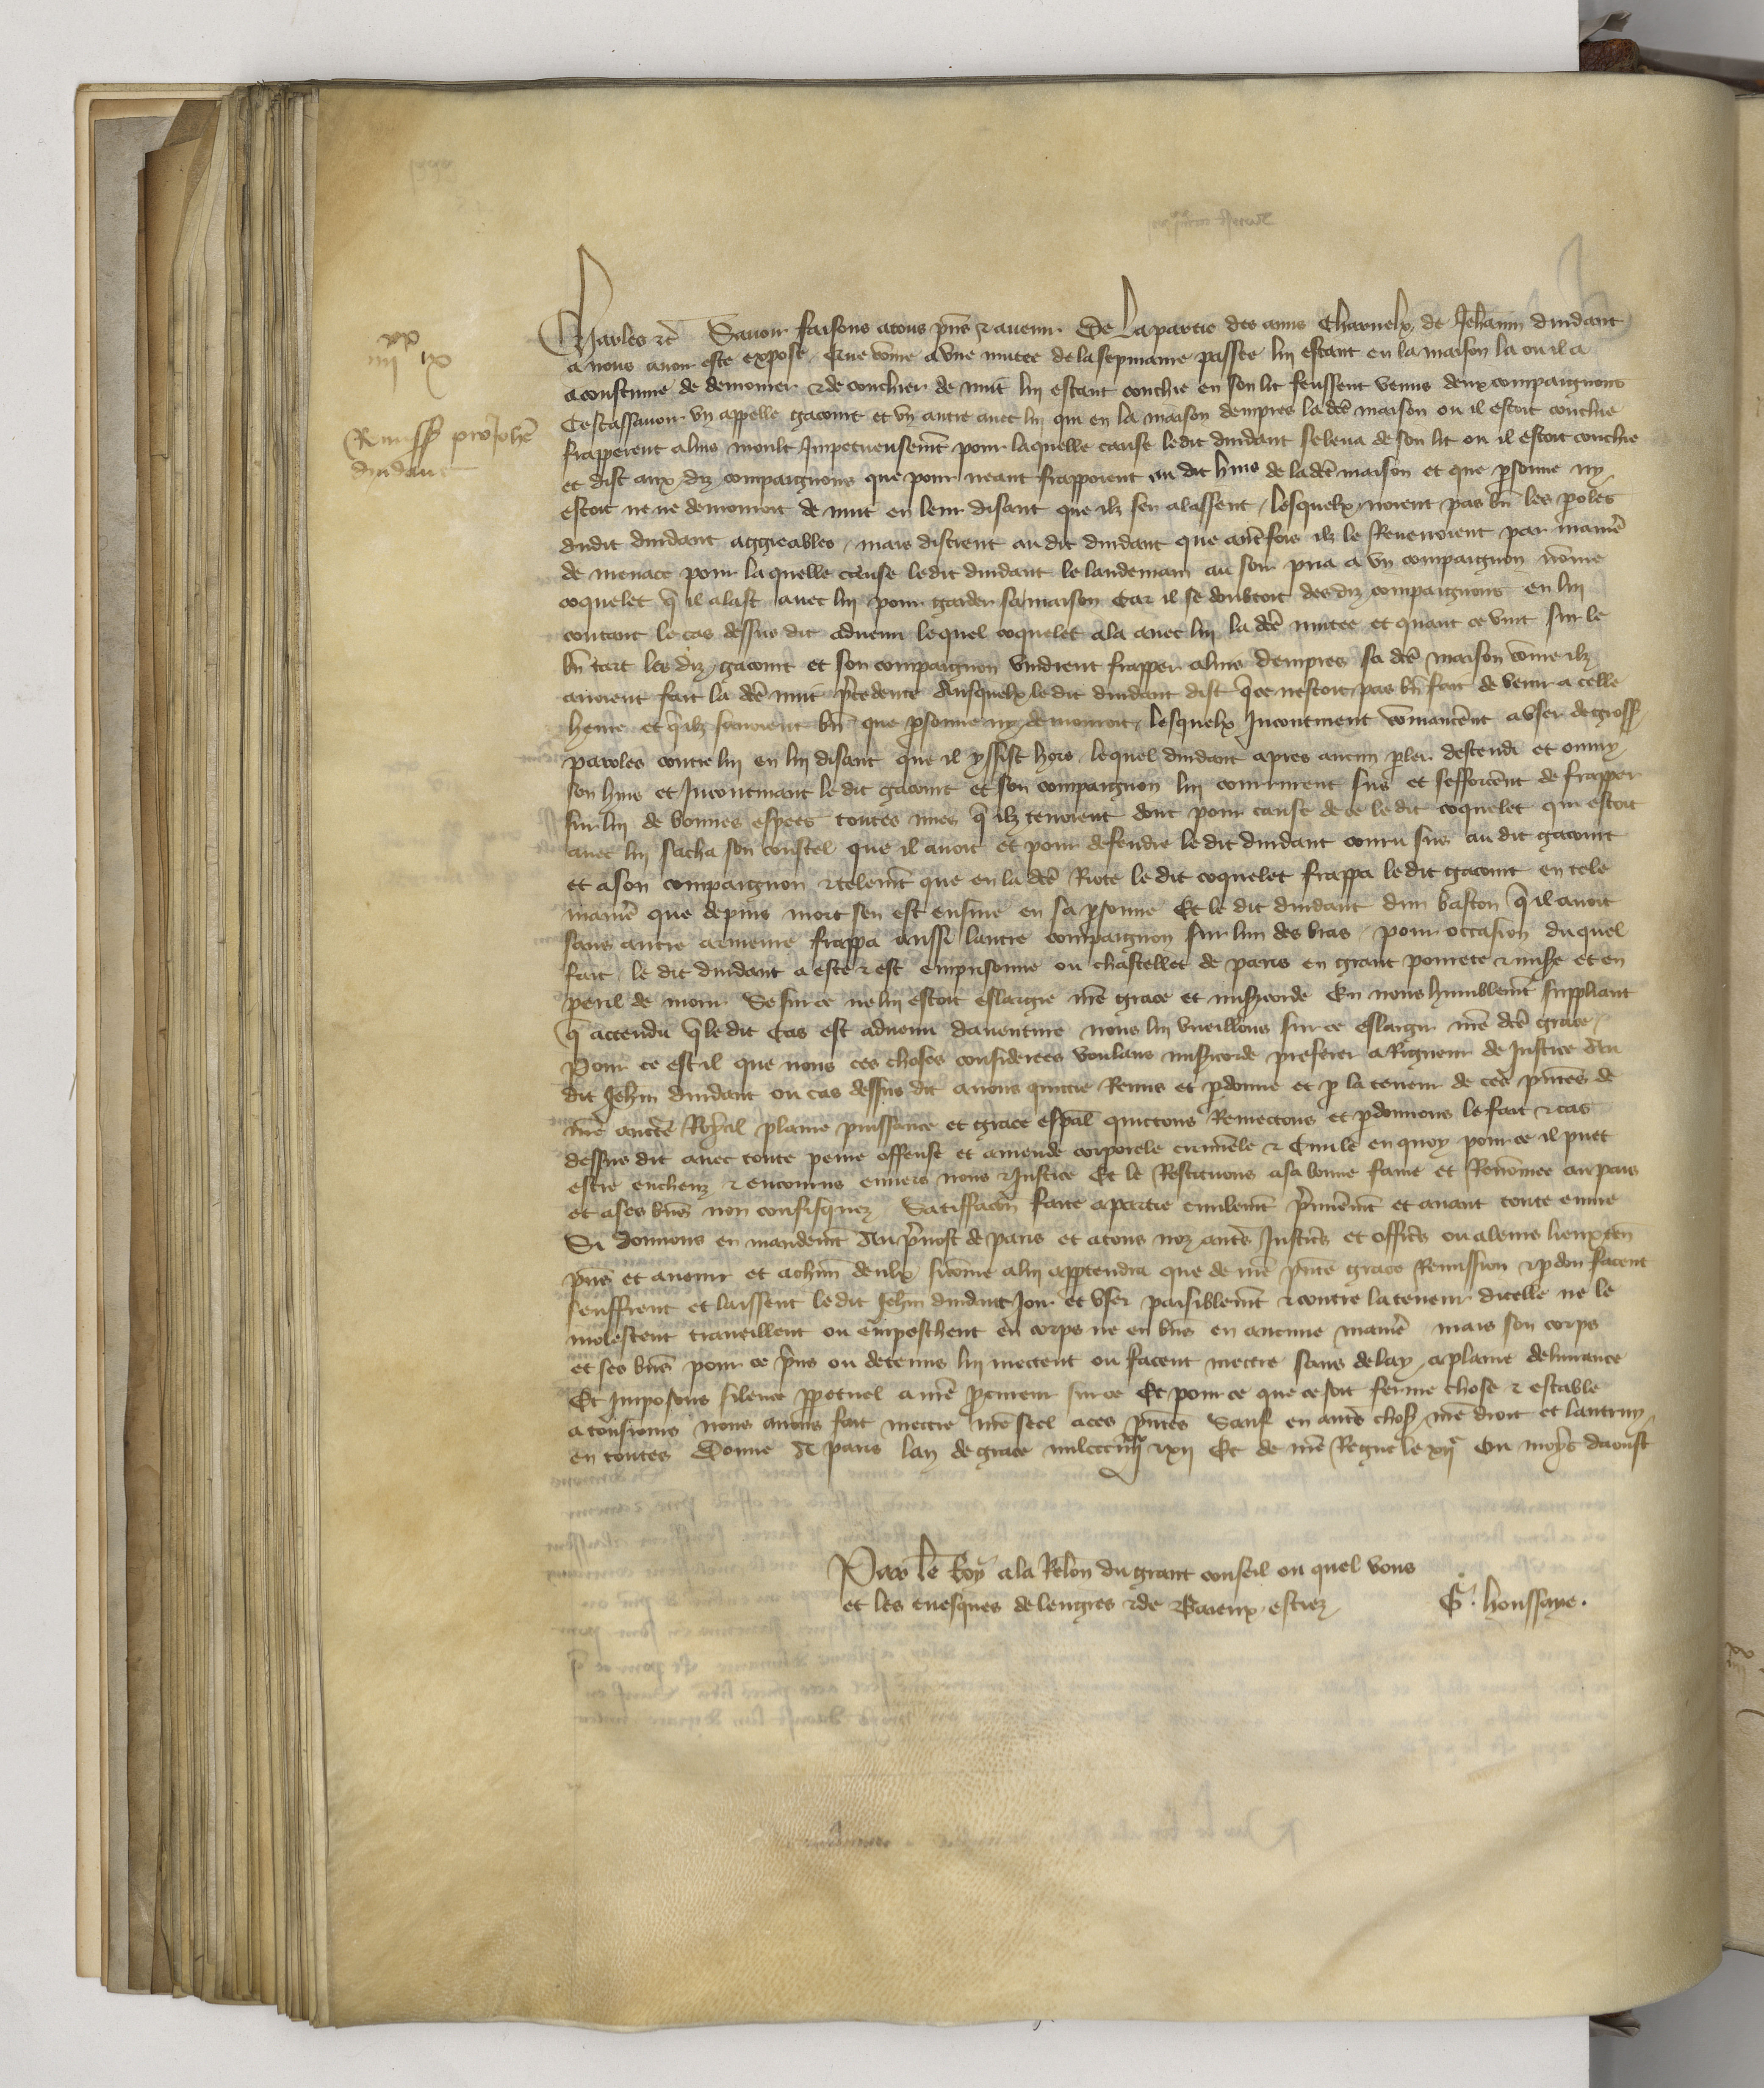 iiii xx ix
Remiss pro Joh̄e
dindant
Charles etc̄ Sauoir faisons a tous p̄ns & auenir De la partie des amis charnelx de Jehannin dindant
a nous auoir este expose Que com̄e a vne nuitee de la sepmaine passee lui estant en la maison la ou il a
acoustume de demourer & de couchier de nuit lui estant couchie en son lit feussent venus deux compaignons
Cestassauoir vn appelle gacoint et vn autre auec lui qui en la maison dempres la dc̄e maison ou il estoit couchie
frapperent a luis moult Impetueusemt̄ pour laquelle cause ledit dindant se leua de son lit ou il estoit couchie
et dist aux diz compaignons que pour neant frappoient au dit huis de lad̄ maison et que ꝑsonne ny
estoit ne ne demouroit de nuit en leur disant que ilz sen alassent lesquelx norent pas bn̄ les ꝑoles
dudit dindant aggreables mais disoient au dit dindant que autr̄efois ilz le Reuerroient par manie͛
de menace pour laquelle cause ledit dindant le landemain au soir pria a vn compaignon nom̄e
coquelet q̄ il alast auec lui pour garder sa maison Car il se doubtoit des diz compaignons en lui
contant le cas dessus dit aduenu lequel coquelet ala auec lui la dc̄e nuitee et quant ce vint sur le
bn̄ tart les diz gacoint et son compaignon vindrent frapper a luis dempres sa dc̄e maison com̄e ilz
auoient fait la dc̄e nuit p̄cedente Ausquelx ledit dindant dist q̄ ce nestoit pas bn̄ fait de venir a celle
heure et q̄ ilz sauoient bn̄ que ꝑsonne ny demouroit lesquelx Incontinent com̄ancer̄ent a vser de gross̄
paroles contre lui en lui disant que il yssist hors lequel dindant apres aucun ꝑler descendi et ouury
son huis et Incontinant le dit gacoint et son compaignon lui coururent sus et sefforcer̄ent de frapper
sur lui de bonnes espees toutes nues q̄ ilz tenoient dont pour cause de ce le dit coquelet qui estoit
auec lui sacha son coustel que il auoit et pour defendre le dit dindant couru sus au dit gacoint
et a son compaignon & telemt̄ que en la dc̄e Riote le dit coquelet frappa le dit gacoint en tele
manier̄e que depuis mort sen est ensuie en sa ꝑsonne Et le dit dindant dun baston q̄ il auoit
sans autre armeure frappa aussi lautre compaignon sur lun des bras pour occasion duquel
fait le dit dindant a este & est emprisonne ou chastellet de paris en grant pourete & mis̄e et en
peril de mour. Se sur ce ne lui estoit eslargie nr̄e grace et mis̄icorde En nous humblemt̄ suppliant
q̄ actendu q̄ le dit Cas est aduenu dauenture nous lui vueillons sur ce eslargir nr̄e dc̄e grace
Pour ce est il que nous ces choses considerees voulans mis̄icorde preferer a Rigueur de Justice Au
dit Jeh̄in dindant ou cas dessus dit auons quictie Remis et ꝑdonne et ꝑ la teneur de ces p̄ntes de
nr̄e auctēe Royal plaine puissance et grace esp̄al quictons Remectons et ꝑdonnons le fait & cas
dessus dit auec toute peine offense et amende corporele crimin̄ele & Ciuile en quoy pour ce il puet
estre encheuz & encourus enuers nous & Justice Et le Restituons a sa bonne fame et Renom̄ee au pais
et a ses bn̄s non confisquez Satisfacc̄on faite a partie ciuilemt̄ p̄mier̄emt̄ et auant toute euure
Si donnons en mandemt̄ Au p̄uost de paris et a tous noz autr̄es Justic̄s et offic̄s ou a leurs lieuxten̄
p̄ns et auenir et a ch̄un deulx sicom̄e a lui app̄tendra que de nr̄e p̄nte grace Remission & ꝑdon facent
seuffrent et laissent ledit Jeh̄in dindant Joir et vser paisiblemt̄ & contre la teneur dicelle ne le
molestent traueillent ou empeschent en corps ne en bn̄s en aucune manier̄e mais son corps
et ses bn̄s pour ce p̄ns ou detenus lui mectent ou facent mectre sans delay a plaine deliurance
Et Imposons silence ꝑpetuel a nr̄e ꝓcureur sur ce Et pour ce que ce soit ferme chose & estable
a tousiours nous auons fait mectre nr̄e seel a ces p̄ntes Sauf en autr̄es chos̄ nr̄e droit et lautruy
en toutes Donne A paris lan de grace mil ccc iiii xx & xii Et de nr̄e Regne le xij e Ou moys daoust
Par le Roy a la Relon̄ du grant conseil ou quel vous
et les euesques de lengres & de Baieux estiez G. houssaye.